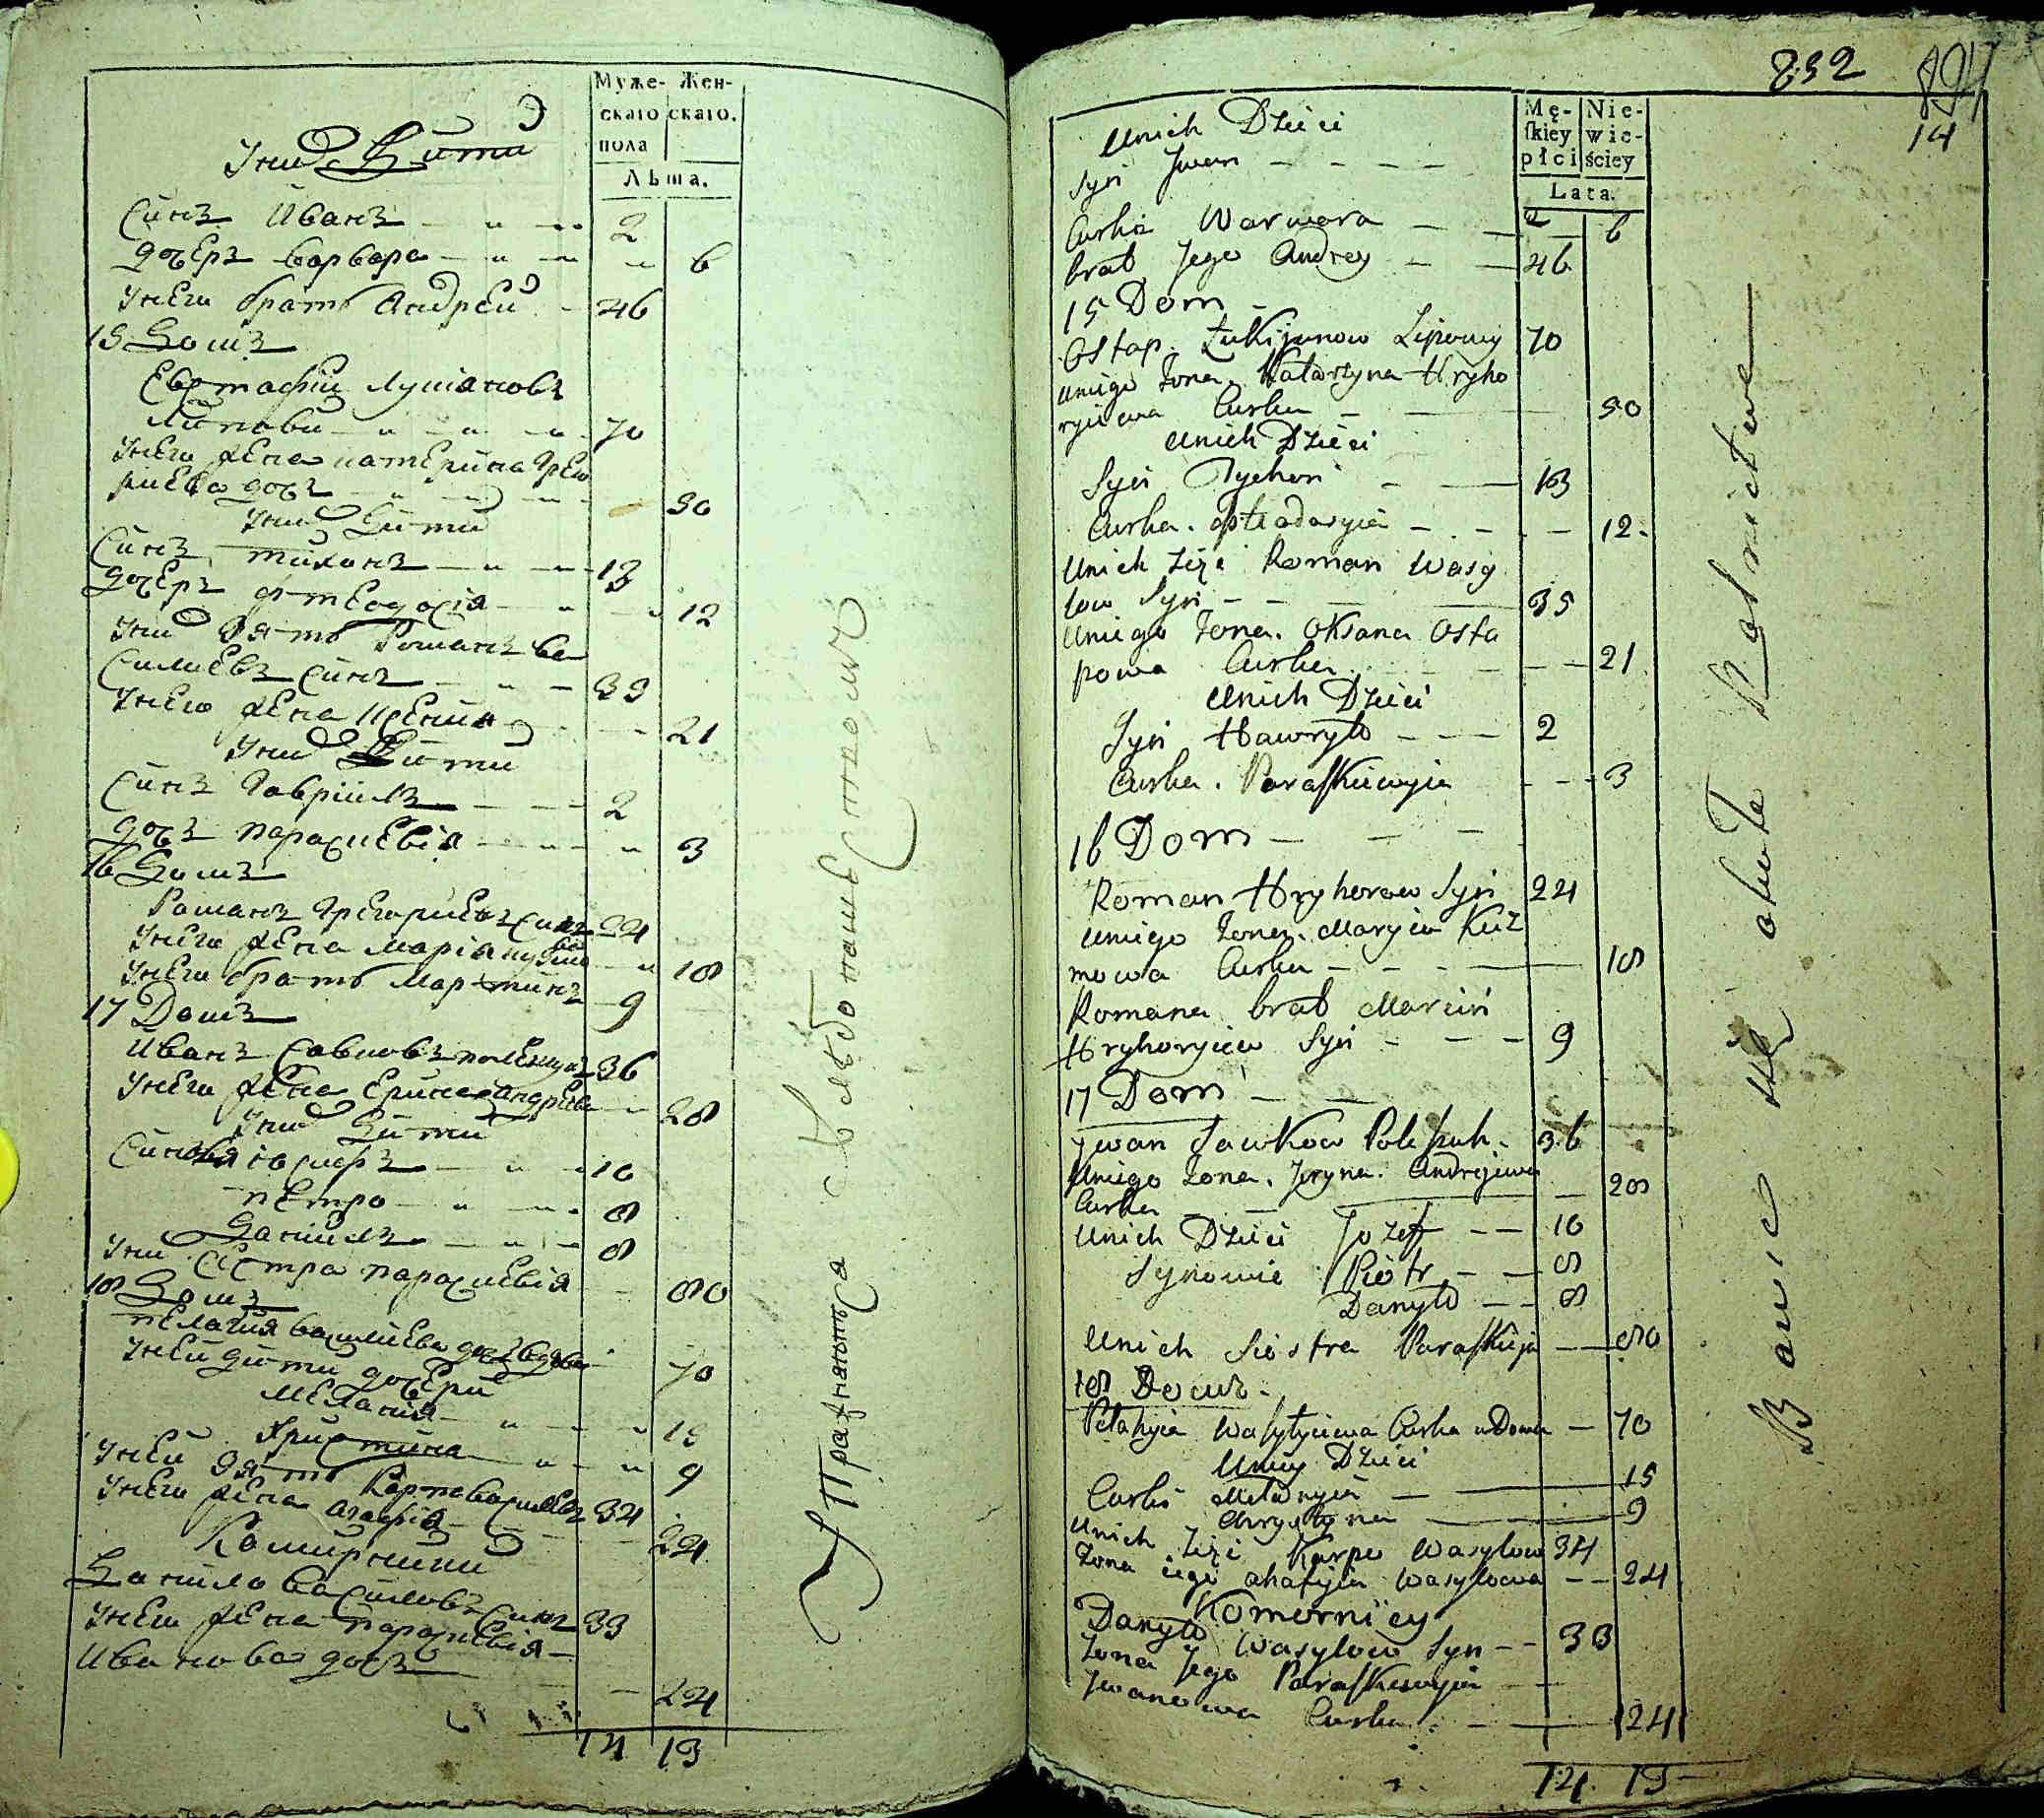 Муже-
скаго
пола
Жен-
скаго.
Лѣта.
У них Дѣти
Синъ Иванъ 2
дочеръ варвара 6
У него братъ Андрей 46
15 Домъ
Евстафій Лукіановъ
Липовий 70
У него жена катерина Григо
риева дочъ 50
У них Дѣти
Синъ тихонъ 13
дочеръ феодосія 12
У них зять Романъ ва
силиевъ синъ 35
У него жена Ксенія 21
У них Дѣти
Синъ Гавріилъ 2
дочъ параскевія 3
16 Домъ
Романъ Григориевъ синъ 24
У него жена Марія 18
У него братъ Мартинъ 9
17 Домъ
Иванъ Савковъ 36
У него жена Ерина Андреева 28
У них Дѣти
Синовья іосифъ 10
петро 8
Даниилъ 8
У них сестра параскевія 80
18 Домъ
пелагия василиева дочъ вдова 70
У ней дѣти дочери
Меланія 15
Христина 9
У ней зять Карпо василиевъ 34
У него жена агафія 24
Комирники
Данило василовъ синъ 33
У него жена параскевія
Иванова дочъ 24
14 13
Упражняются в хлѣбопашествомъ
832
894
14
Mę-
skiey
płci
Nie-
wie-
ściey
Lata.
Unich Dzieci
Syn Jwan 2
Curka Warwara 6
brat Jego Andrey 46
15 Dom
Ostap Łukijanow Lipowy 70
Uniego Żona Katarzyna Hryho
ryiewa Curka 50
Unich Dzieci
Syn Tychon 13
Curka 12.
Unich Zięć Roman Wasy
low Syn 35
Uniego Żona Oksana Osta
powa Curka 21
Unich Dzieci
Syn Hawryło 2
Curka Paraskiewyia 3
16 Dom
Roman Hryhorow Syn 24
Uniego Żona Maryia Kuź
mowa Curka 18
Romana brat Marcin
Hryhoryiew Syn 9
17 Dom
Jwan Sawkow 36
Uniego Żona Jryna Andrejewa
Curka 28
Unich Dzieci Jozef 10
Synowie Piotr 8
Danyło 8
Unich Siostra Paraskieja 80
18 Домъ
Pelahyia Wasylyiewa Curka wDowa 70
Uniey Dzieci
Curki Melanyia 15
Chrystyna 9
Unich Zięć Karpo Wasylow 34
Żona iego ahafyia Wasylowa 24
Komornicy
Danyło Wasylow Syn 33
Żona Jego Paraskiewyia
Jwanowa Curka 24
14 13
Bawie się około Rolnictwe